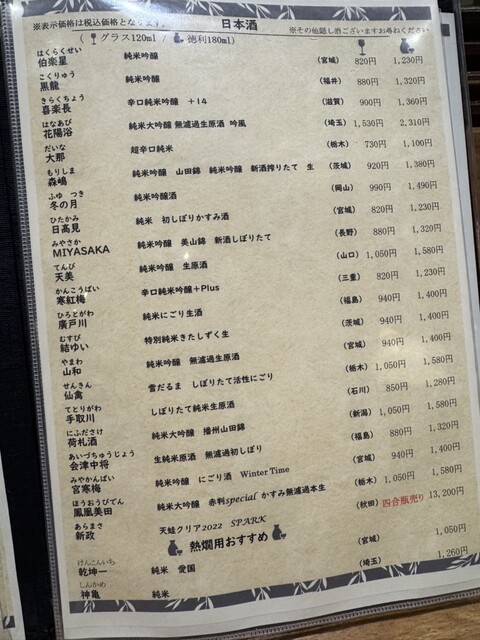 日本酒
※表示価格は税込価格となります。 ※その他隠し酒ございますお尋ねください
( グラス120ml / 徳利180ml)
はくらくせい
伯楽星 純米吟醸 (宮城) 820円 1,230円
こくりゅう
黒龍 純米吟醸 (福井) 880円 1,320円
きらくちょう
喜楽長 辛口純米吟醸 +14 (滋賀) 900円 1,360円
はなあび
花陽浴 純米大吟醸 無濾過生原酒 吟風 (埼玉) 1,530円 2,310円
だいな
大那 超辛口純米 (栃木) 730円 1,100円
もりしま
森嶋 純米吟醸 山田錦 純米吟醸 新酒搾りたて 生 (茨城) 920円 1,380円
ふゆ つき
冬の月 純米吟醸酒 (岡山) 990円 1,490円
ひたかみ
日高見 純米 初しぼりかすみ酒 (宮城) 820円 1,230円
みやさか
MIYASAKA 純米吟醸 美山錦 新酒しぼりたて (長野) 880円 1,320円
てんび
天美 純米吟醸 生原酒 (山口) 1,050円 1,580円
かんこうばい
寒紅梅 辛口純米吟醸+Plus (三重) 820円 1,230円
ひろとがわ
廣戸川 純米にごり生酒 (福島) 940円 1,400円
むすび
結ゆい 特別純米きたしずく生 (茨城) 940円 1,400円
やまわ
山和 純米吟醸 無濾過生原酒 (宮城) 940円 1,400円
せんきん
仙禽 雪だるま しぼりたて活性にごり (栃木) 1,050円 1,580円
てとりがわ
手取川 しぼりたて純米生原酒 (石川) 850円 1,280円
にふださけ
荷札酒 純米大吟醸 播州山田錦 (新潟) 1,050円 1,580円
あいづちゅうじょう
会津中将 生純米原酒 無濾過初しぼり (福島) 880円 1,320円
みやかんばい
宮寒梅 純米吟醸 にごり酒 Winter Time (宮城) 940円 1,400円
ほうおうびでん
鳳凰美田 純米大吟醸 赤判special かすみ無濾過本生 (栃木) 1,050円 1,580円
あらまさ
新政 天蛙クリア2022 SPARK (秋田) 四合瓶売り 13,200円
熱燗用おすすめ
けんこんいち
乾坤一 純米 愛国 (宮城) 1,050円
しんかめ
神亀 純米 (埼玉) 1,260円